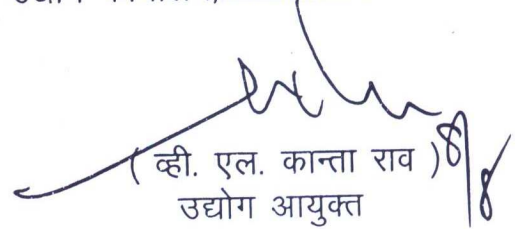 ( व्ही. एल. कान्ता राव ) 8/8
उद्योग आयुक्त